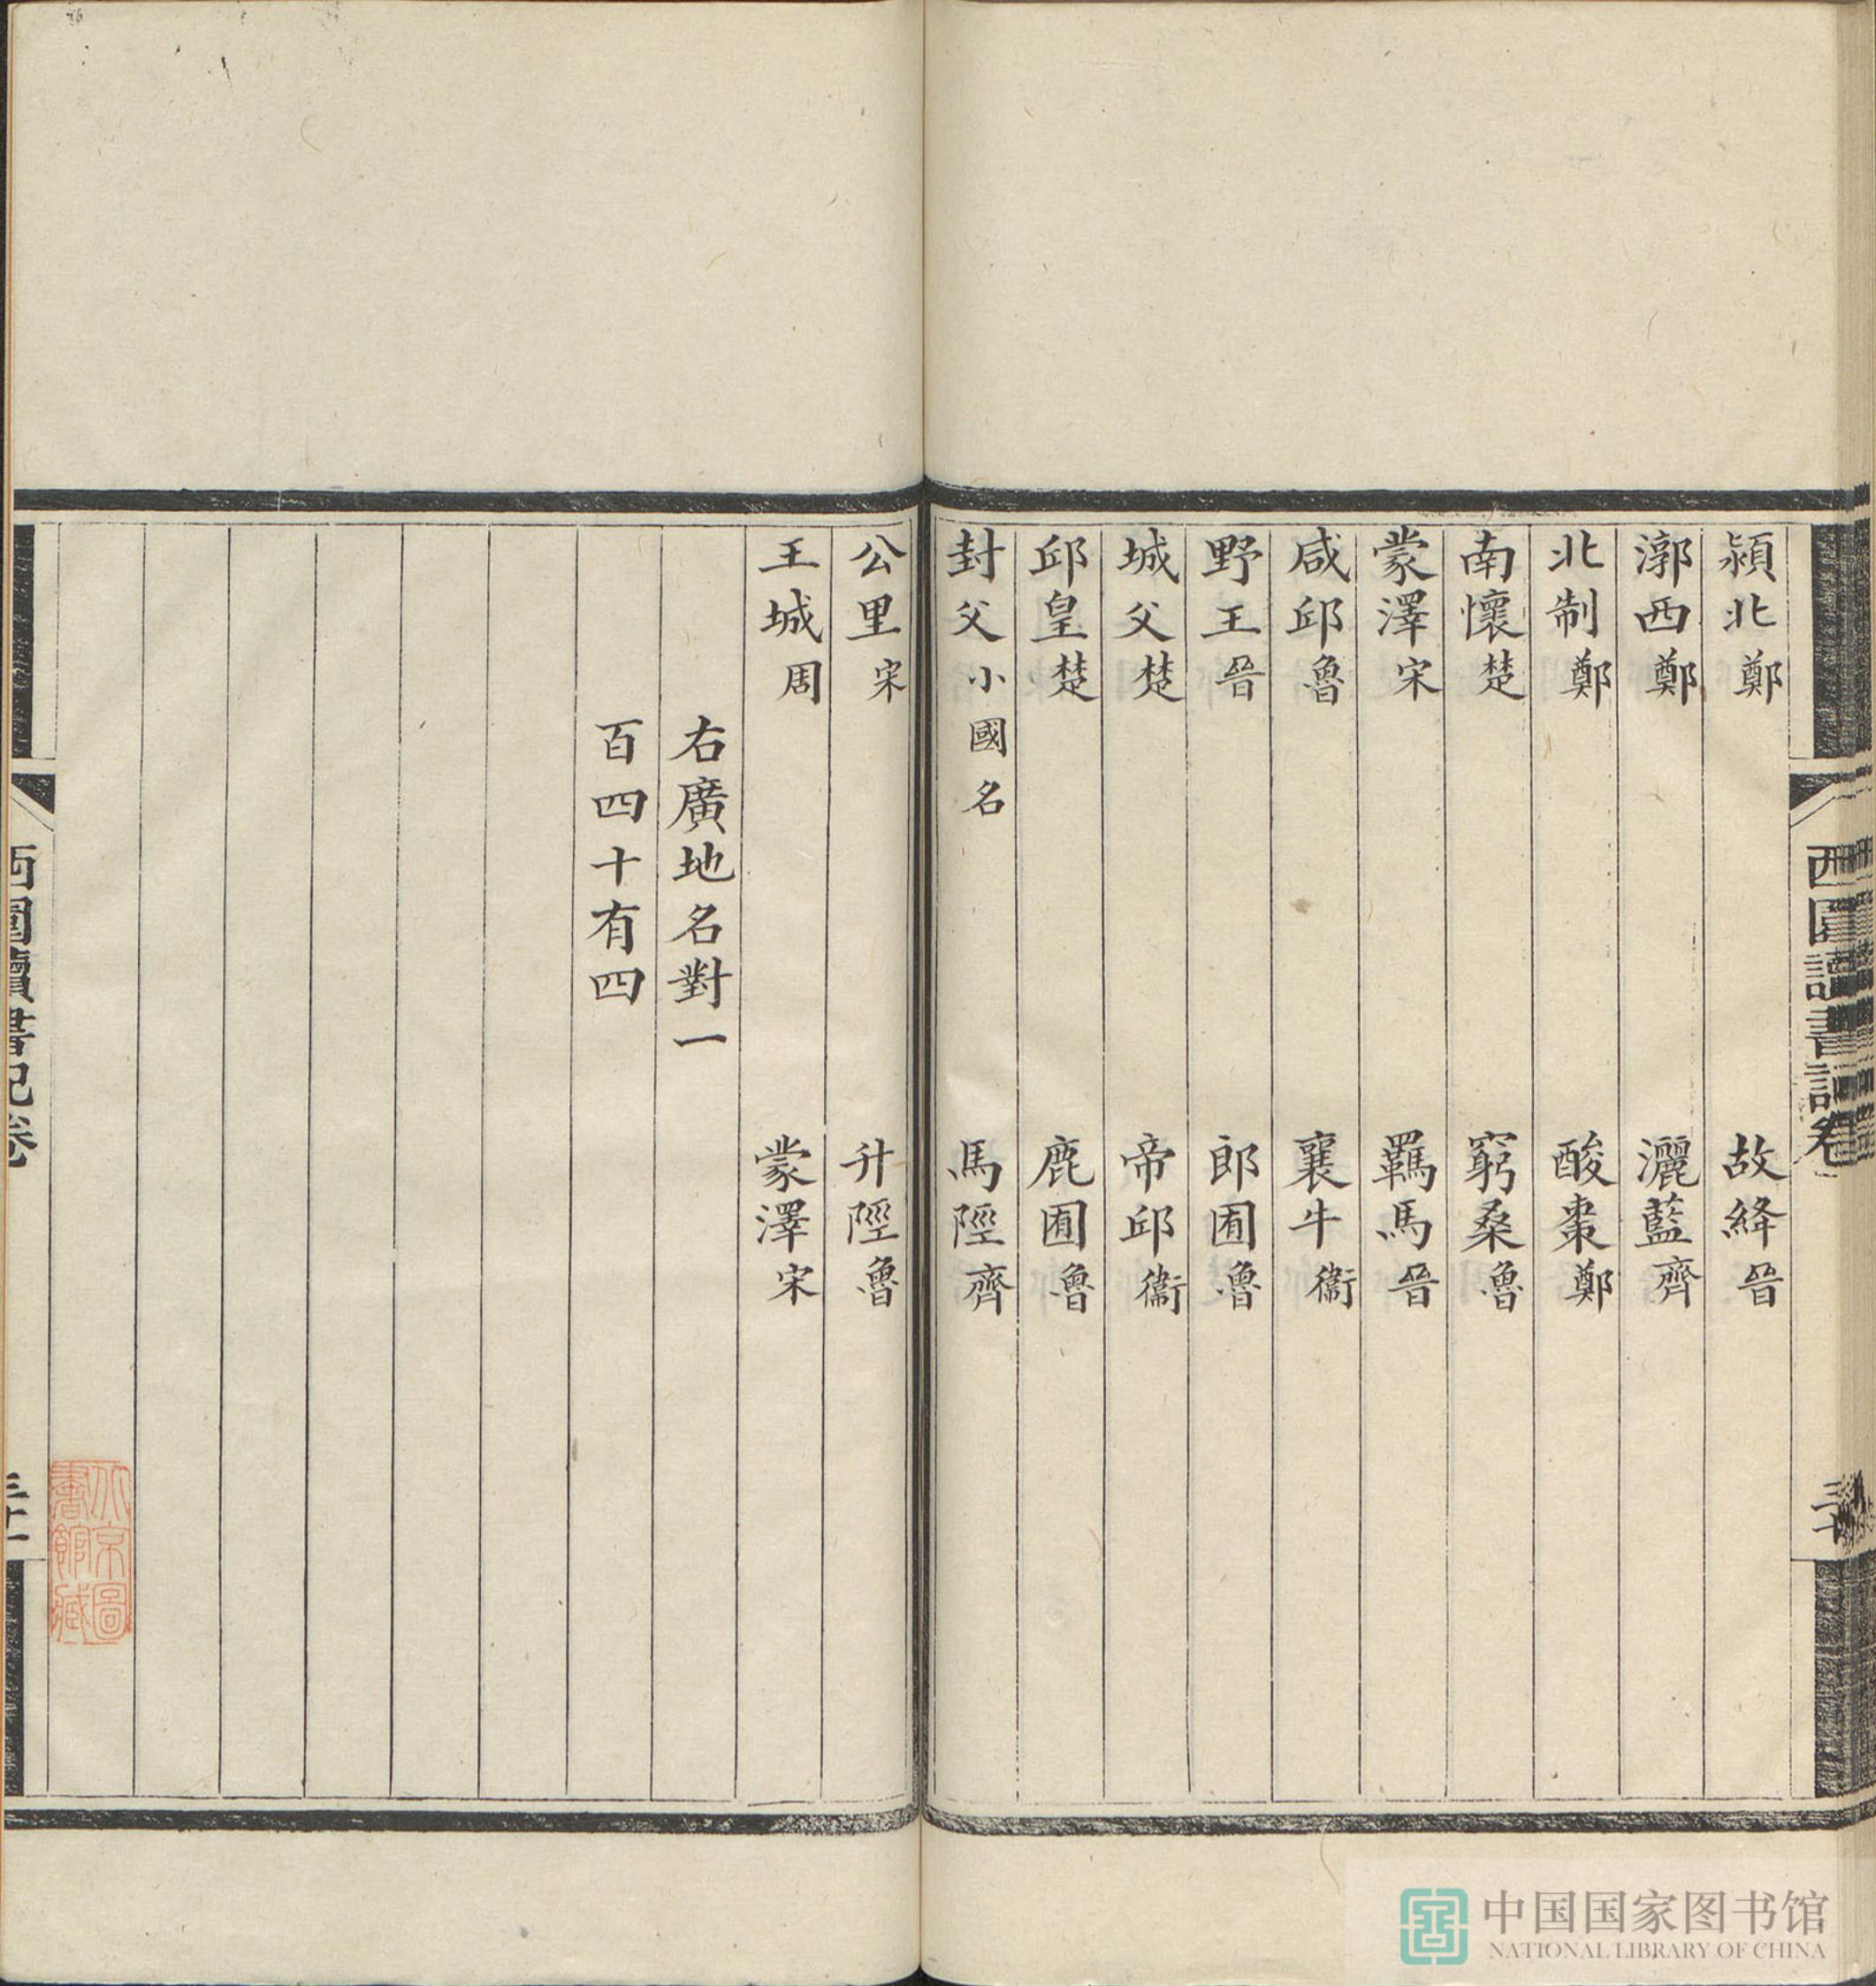 潁北鄭 故絳晉
漷西鄭 灑藍齊
北制鄭 酸棗鄭
南懷楚 窮桑魯
蒙澤宋 羈馬晉
咸邱魯 襄牛衞
野王晉 郎囿魯
城父楚 帝邱衞
邱皇楚 鹿囿魯
封父小國名 馬陘齊
公里宋 升陘魯
王城周 蒙澤宋
右廣地名對一
百四十有四
西圃讀書記卷
三十
西圃讀書記卷
三十一
京圖
書館藏
中国国家图书馆
NATIONAL LIBRARY OF CHINA